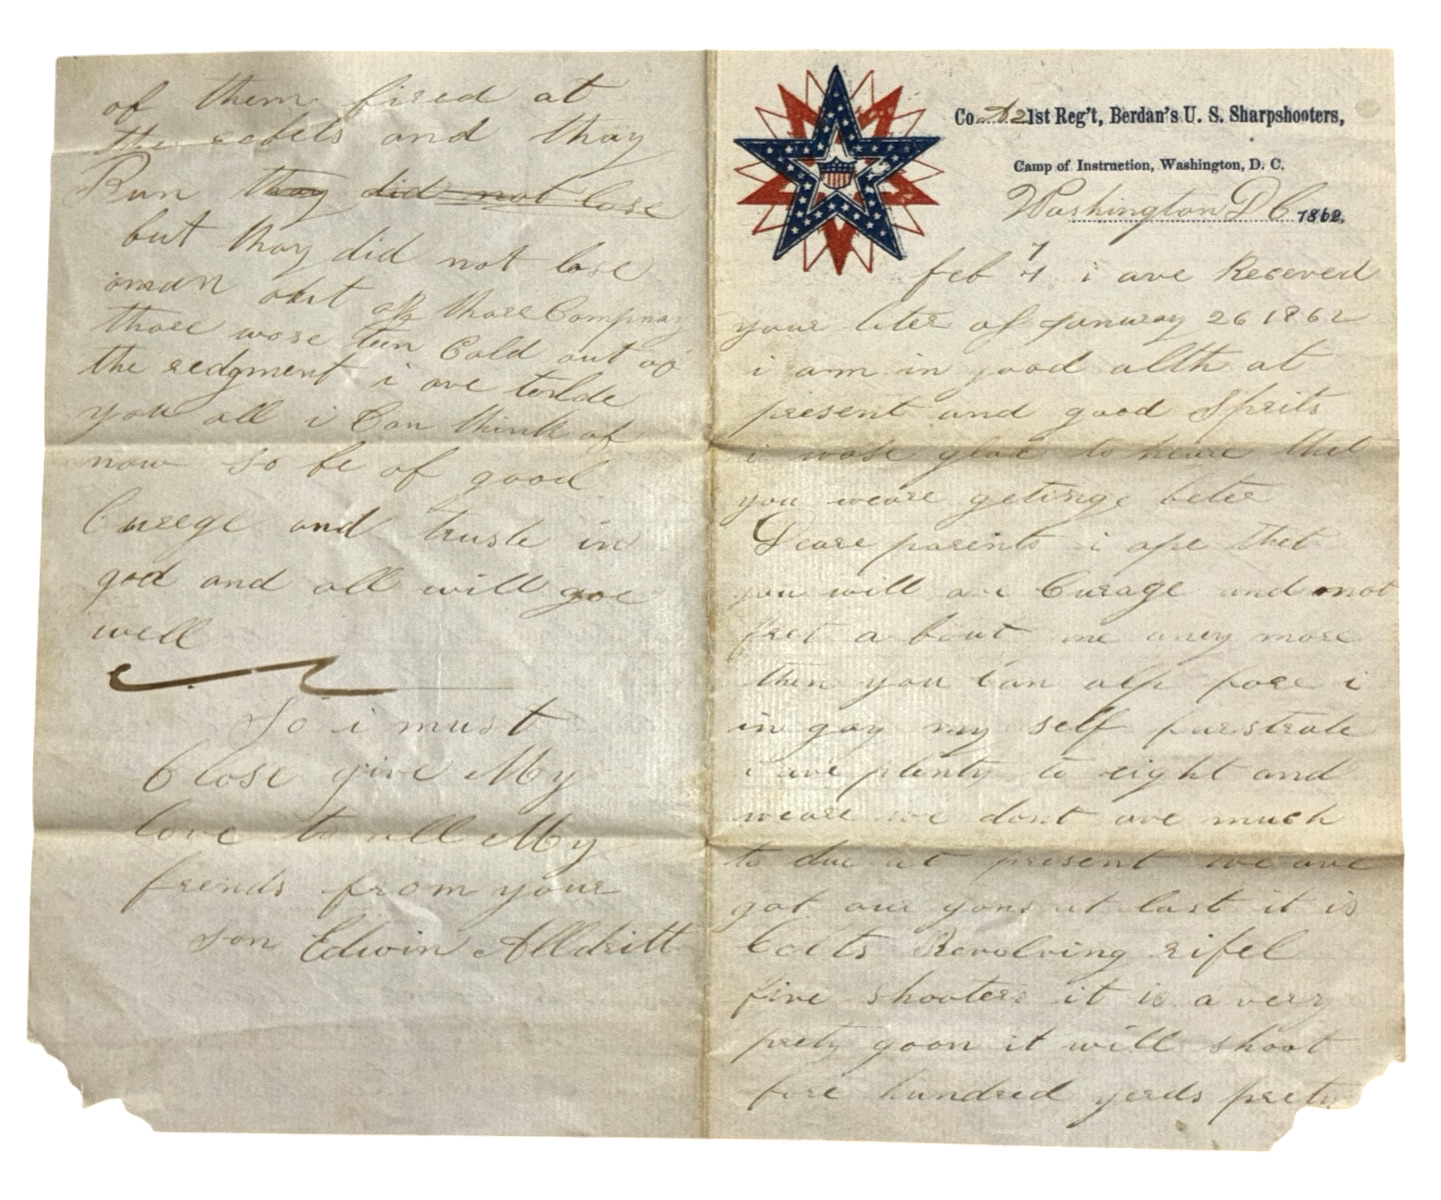 of them fired at
the rebels and thay
Run thay did not lose
but thay did not lose
aman out of thare Compnay
thare wore ten Cald out of
the redgment i ave tolde
you all i Can think of
now so be of good
Curege and truste in
god and all will goe
well
So i must
Close give My
love to all My
frends from your
son Edwin Alldritt
Co. A 21st Reg't, Berdan's U. S. Sharpshooters,
Camp of Instruction, Washington, D. C.
Washington D C 1862.
feb 7 i ave Receved
your leter of Janury 26 1862
i am in good alth at
present and good Sprits
i wose glad to heare thet
you weare getinge beter
Deare parents i ope thet
you will ave Curage and not
fret a bout me aney more
then you Can alp fore i
in gay my self furstrate
i ave plenty to eight and
weare we dont ave much
to due at present we ave
got our gons at last it is
Colts Revolving rifel
five shooters it is a very
prety goon it will shoot
fore hundred yerds prety